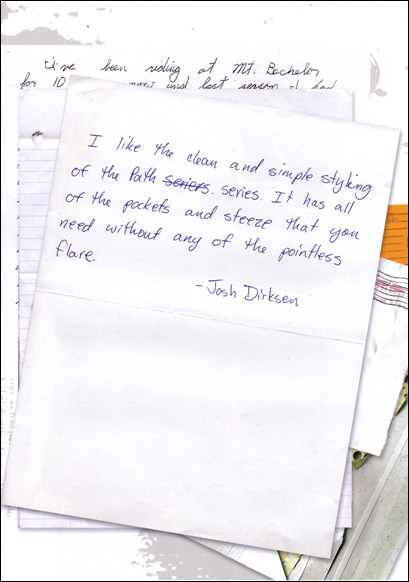 I've been riding at Mt. Bachelor
for 10 and last season I had
I like the clean and simple styling
of the Path seriers. series. It has all
of the pockets and steeze that you
need without any of the pointless
flare.
- Josh Dirksen